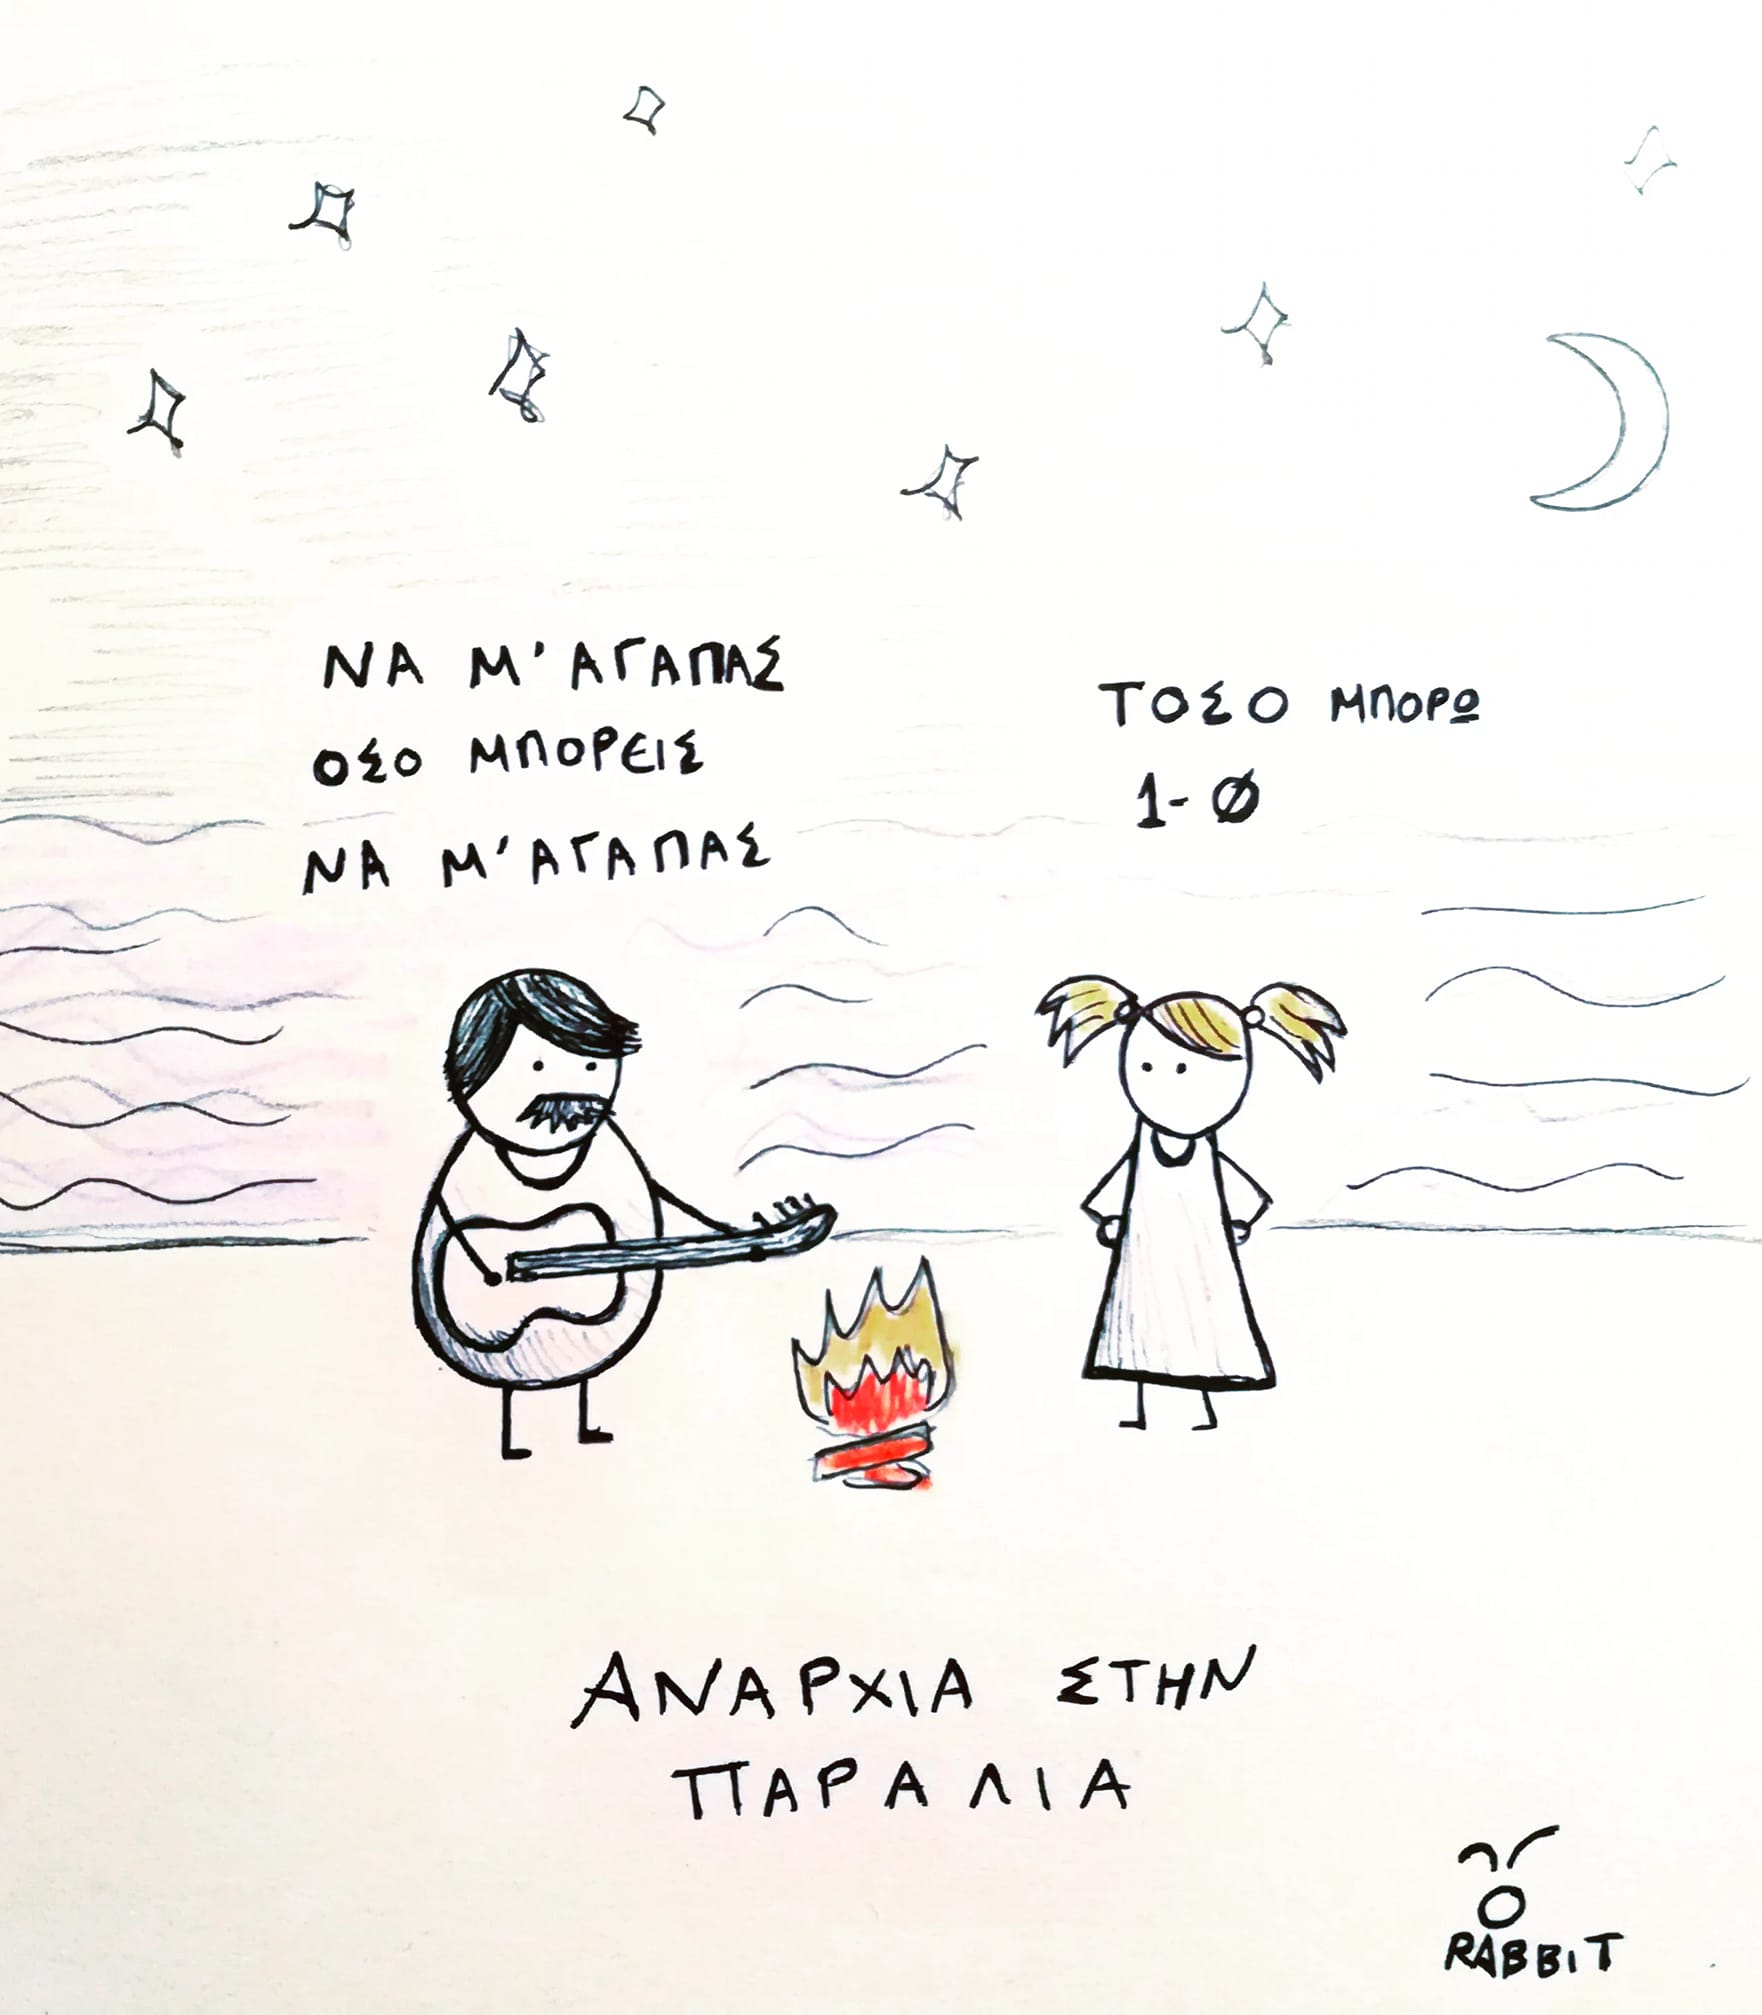 ΝΑ Μ'ΑΓΑΠΑΣ
ΟΣΟ ΜΠΟΡΕΙΣ
ΝΑ Μ'ΑΓΑΠΑΣ
ΤΟΣΟ ΜΠΟΡΩ
1-0
ΑΝΑΡΧΙΑ ΣΤΗΝ
ΠΑΡΑΛΙΑ
RABBIT